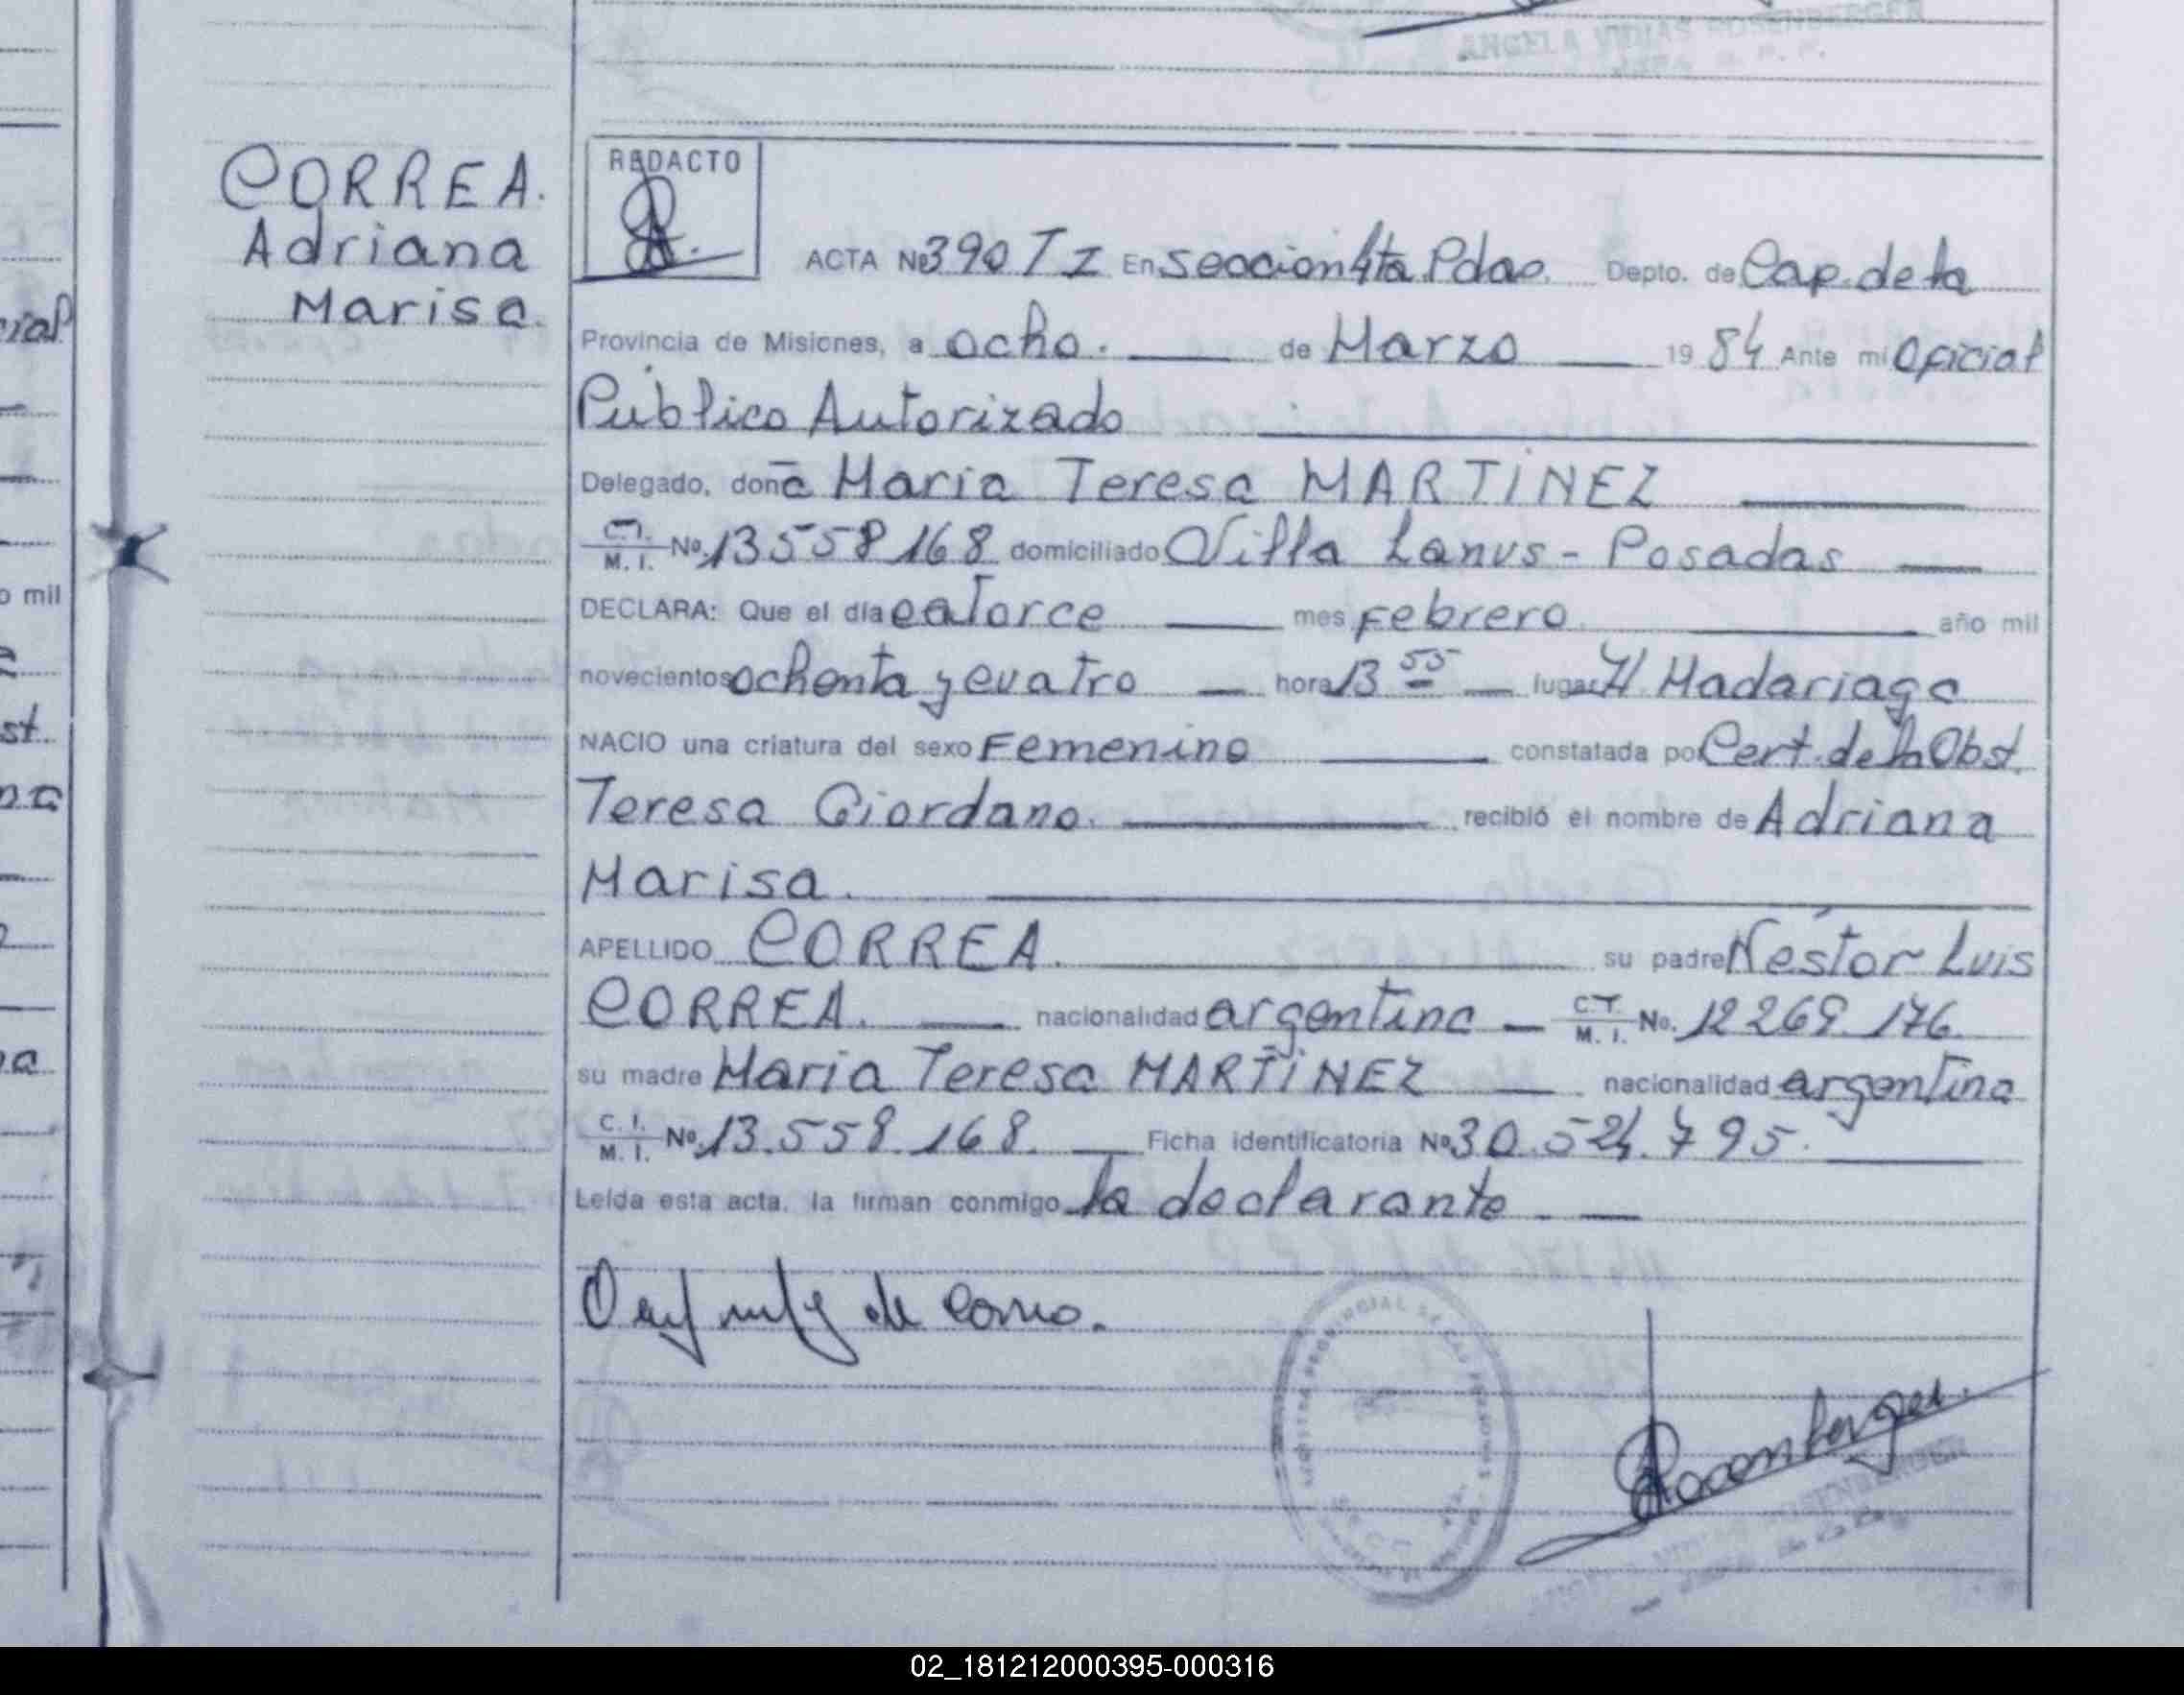 ANGELA VIDAS ROSENBERGER
CORREA.
Adriana
Marisa.
REDACTO
ACTA Nº 390 T I En seccion 4ta Pdas. Depto. de Cap. de la
Provincia de Misiones, a ocho. de Marzo 19 84 Ante mi Oficial
Público Autorizado
Delegado, doña Maria Teresa MARTINEZ
C.I. M.I. No. 13558168 domiciliado Villa Lanus - Posadas
DECLARA: Que el día catorce mes Febrero. año mil
novecientos ochenta y cuatro hora 13 55 lugar H. Madariaga
NACIO una criatura del sexo Femenino constatada por Cert. de la Obst.
Teresa Giordano. recibió el nombre de Adriana
Marisa.
APELLIDO CORREA. su padre Néstor Luis
CORREA. nacionalidad argentina C.I. M.I. No. 12269.176.
su madre Maria Teresa MARTINEZ nacionalidad argentina
C.I. M.I. No. 13.558.168. Ficha identificatoria No 30.524.795.
Leída esta acta, la firman conmigo la declarante
de
Rosenberger.
ROSENBERGER
cial
o mil
st.
02_181212000395-000316